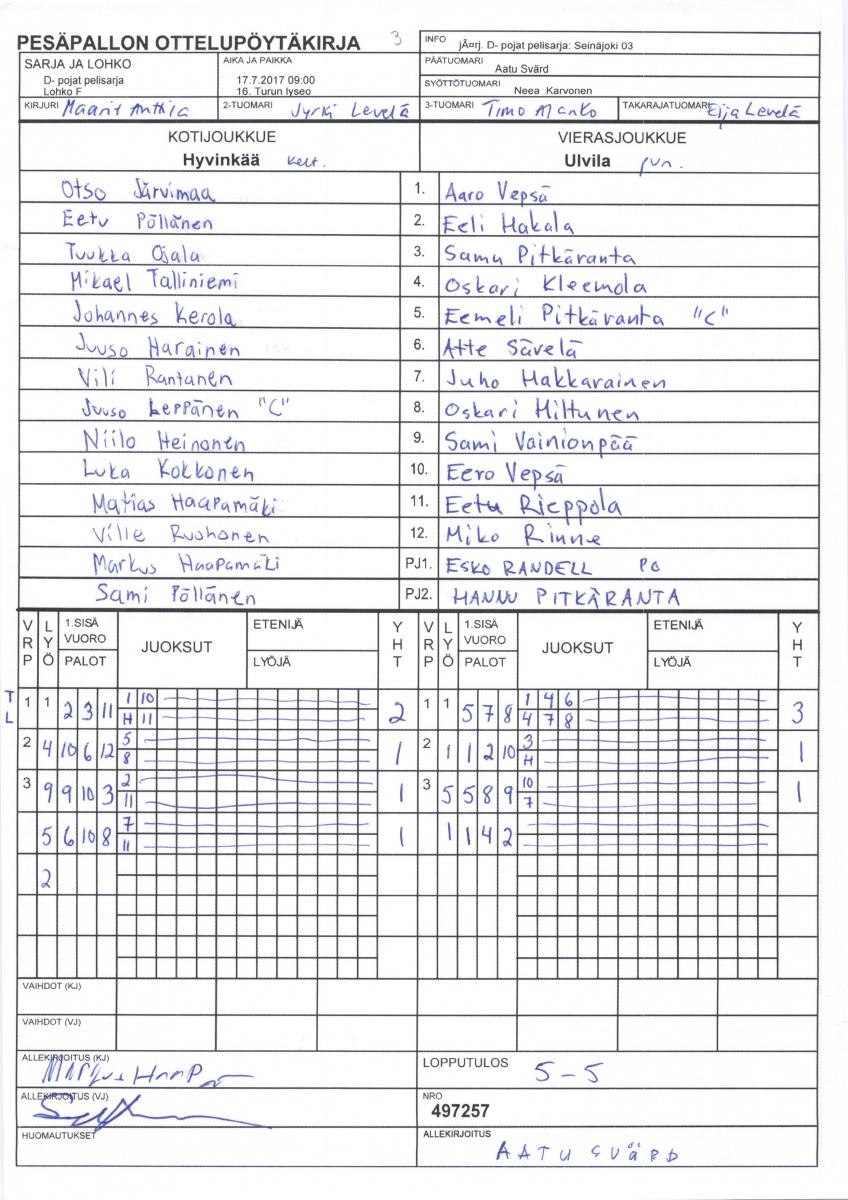 PESÄPALLON OTTELUPÖYTÄKIRJA 3
INFO jÃ¤rj. D- pojat pelisarja: Seinäjoki 03
SARJA JA LOHKO
D- pojat pelisarja
Lohko F
AIKA JA PAIKKA
17.7.2017 09:00
16. Turun lyseo
PÄÄTUOMARI
Aatu Svärd
SYÖTTÖTUOMARI
Neea Karvonen
KIRJURI Maarit Anttila 2-TUOMARI Jyrki Levelä 3-TUOMARI Timo Alanko TAKARAJATUOMARI Eija Levelä
KOTIJOUKKUE VIERASJOUKKUE
Hyvinkää kelt. Ulvila pun.
Otso Järvimaa 1. Aaro Vepsä
Eetu Pöllänen 2. Eeli Hakala
Tuukka Ojala 3. Samu Pitkäranta
Mikael Talliniemi 4. Oskari Kleemola
Johannes Kerola 5. Eemeli Pitkäranta "C"
Juuso Harainen 6. Atte Sävelä
Vili Rantanen 7. Juho Hakkarainen
Juuso Leppänen "C" 8. Oskari Hiltunen
Niilo Heinonen 9. Sami Vainionpää
Luka Kokkonen 10. Eero Vepsä
Matias Haapamäki 11. Eetu Rieppola
Ville Ruohonen 12. Miko Rinne
Markus Haapamäki PJ1. ESKO RANDELL PO
Sami Pöllänen PJ2. HANNU PITKÄRANTA
VRP LYÖ 1.SISÄ VUORO PALOT JUOKSUT ETENIJÄ LYÖJÄ YHT VRP LYÖ 1.SISÄ VUORO PALOT JUOKSUT ETENIJÄ LYÖJÄ YHT
TL 1 1 2 3 11 1 10 2 1 1 5 7 8 1 4 6 3
H 11 4 7 8
2 4 10 6 12 5 1 2 1 1 2 10 3 1
8 H
3 9 9 10 3 2 1 3 5 5 8 9 10 1
11 7
5 6 10 8 7 1 1 1 4 2
11
2
VAIHDOT (KJ)
VAIHDOT (VJ)
ALLEKIRJOITUS (KJ)
LOPPUTULOS 5-5
ALLEKIRJOITUS (VJ)
NRO
497257
HUOMAUTUKSET
ALLEKIRJOITUS
AATU SVÄRD